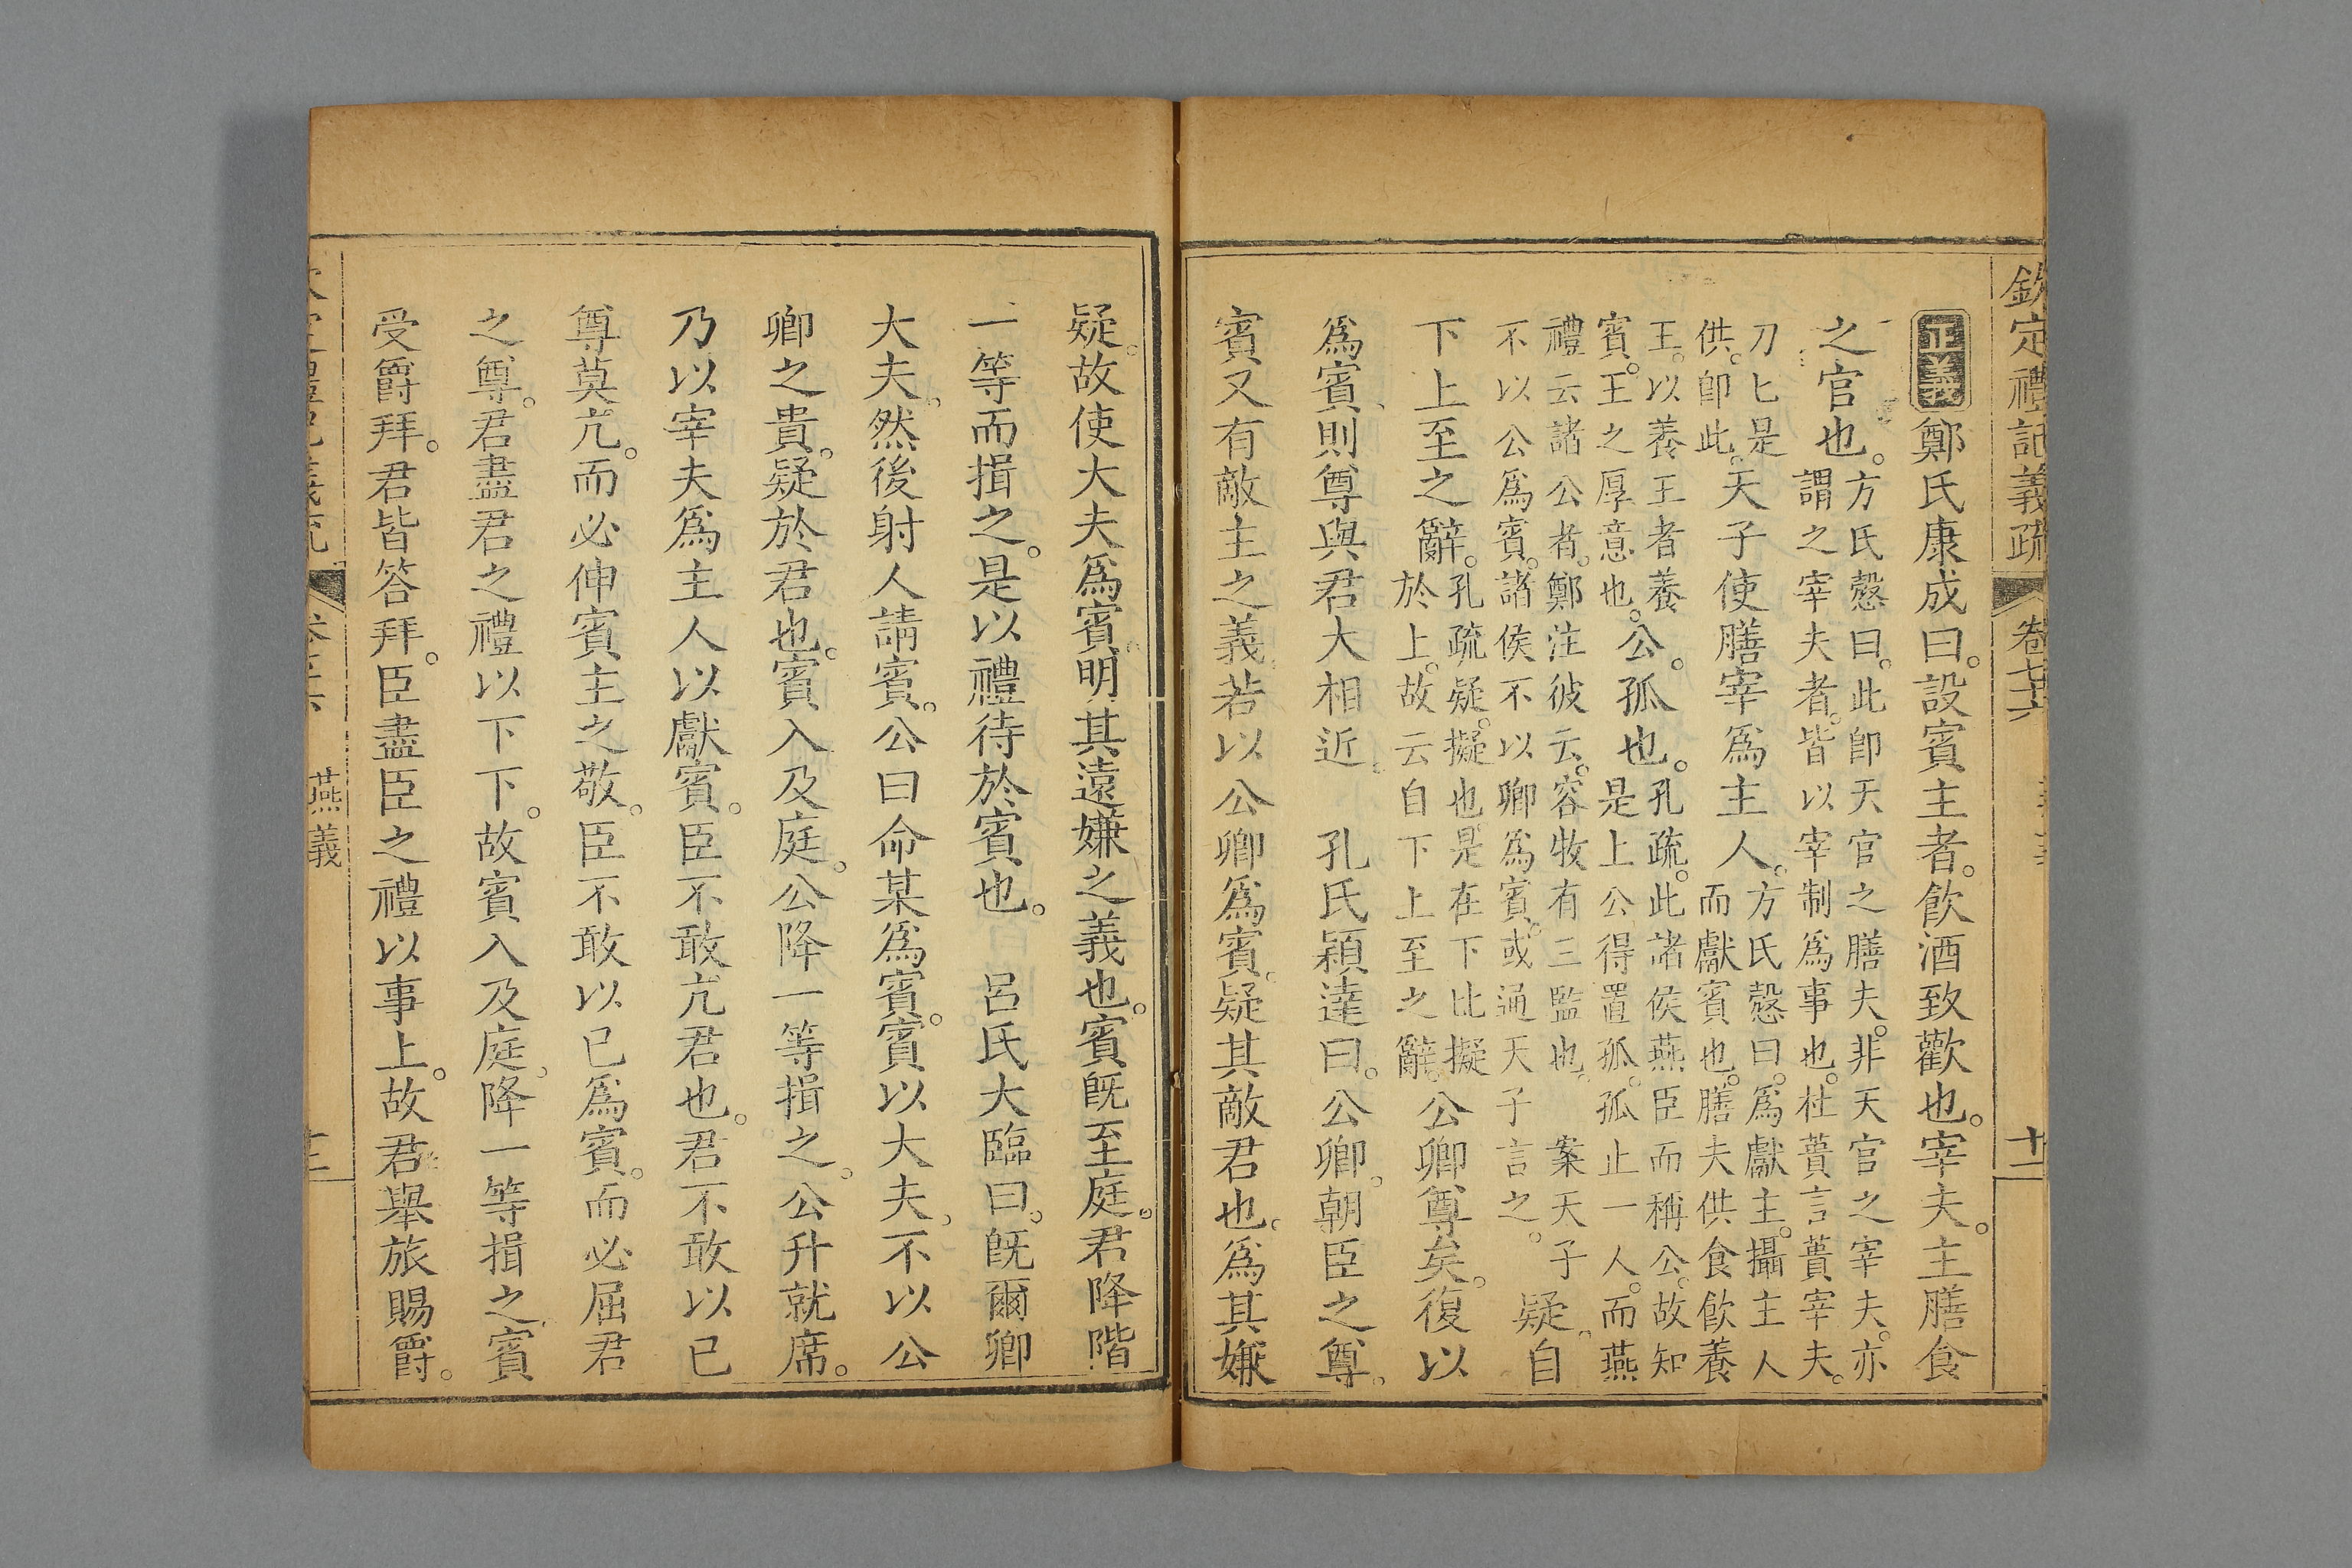 欽定禮記義疏 卷七十六 十一
正義鄭氏康成曰。設賓主者。飲酒致歡也。宰夫。主膳食
之官也。方氏慤曰。此卽天官之膳夫。非天官之宰夫。亦
謂之宰夫者。皆以宰制爲事也。杜蕢言蕢宰夫。
刀匕是
供。卽此。天子使膳宰爲主人。方氏慤曰。爲獻主。攝主人
而獻賓也。膳夫供食飲養
王。以養王者養
賓。王之厚意也。公。孤也。孔疏。此諸侯燕臣而稱公。故知
是上公得置孤。孤止一人。而燕
禮云諸公者。鄭注彼云。容牧有三監也。 案天子
不以公爲賓。諸侯不以卿爲賓。或通天子言之。 疑。自
下上至之辭。孔疏疑。擬也。是在下比擬
於上。故云自下上至之辭。公卿尊矣。復以
爲賓。則尊與君大相近。 孔氏穎達曰。公卿。朝臣之尊。
賓又有敵主之義。若以公卿爲賓。疑其敵君也。爲其嫌
疑。故使大夫爲賓。明其遠嫌之義也。賓旣至庭。君降階
一等而揖之。是以禮待於賓也。 呂氏大臨曰。旣爾卿
大夫。然後射人請賓。公曰命某爲賓。賓以大夫。不以公
卿之貴。疑於君也。賓入及庭。公降一等揖之。公升就席。
乃以宰夫爲主人以獻賓。臣不敢亢君也。君不敢以已
尊莫亢。而必伸賓主之敬。臣不敢以已爲賓。而必屈君
之尊。君盡君之禮以下下。故賓入及庭。降一等揖之。賓
受爵拜。君皆答拜。臣盡臣之禮以事上。故君舉旅賜爵。
燕義